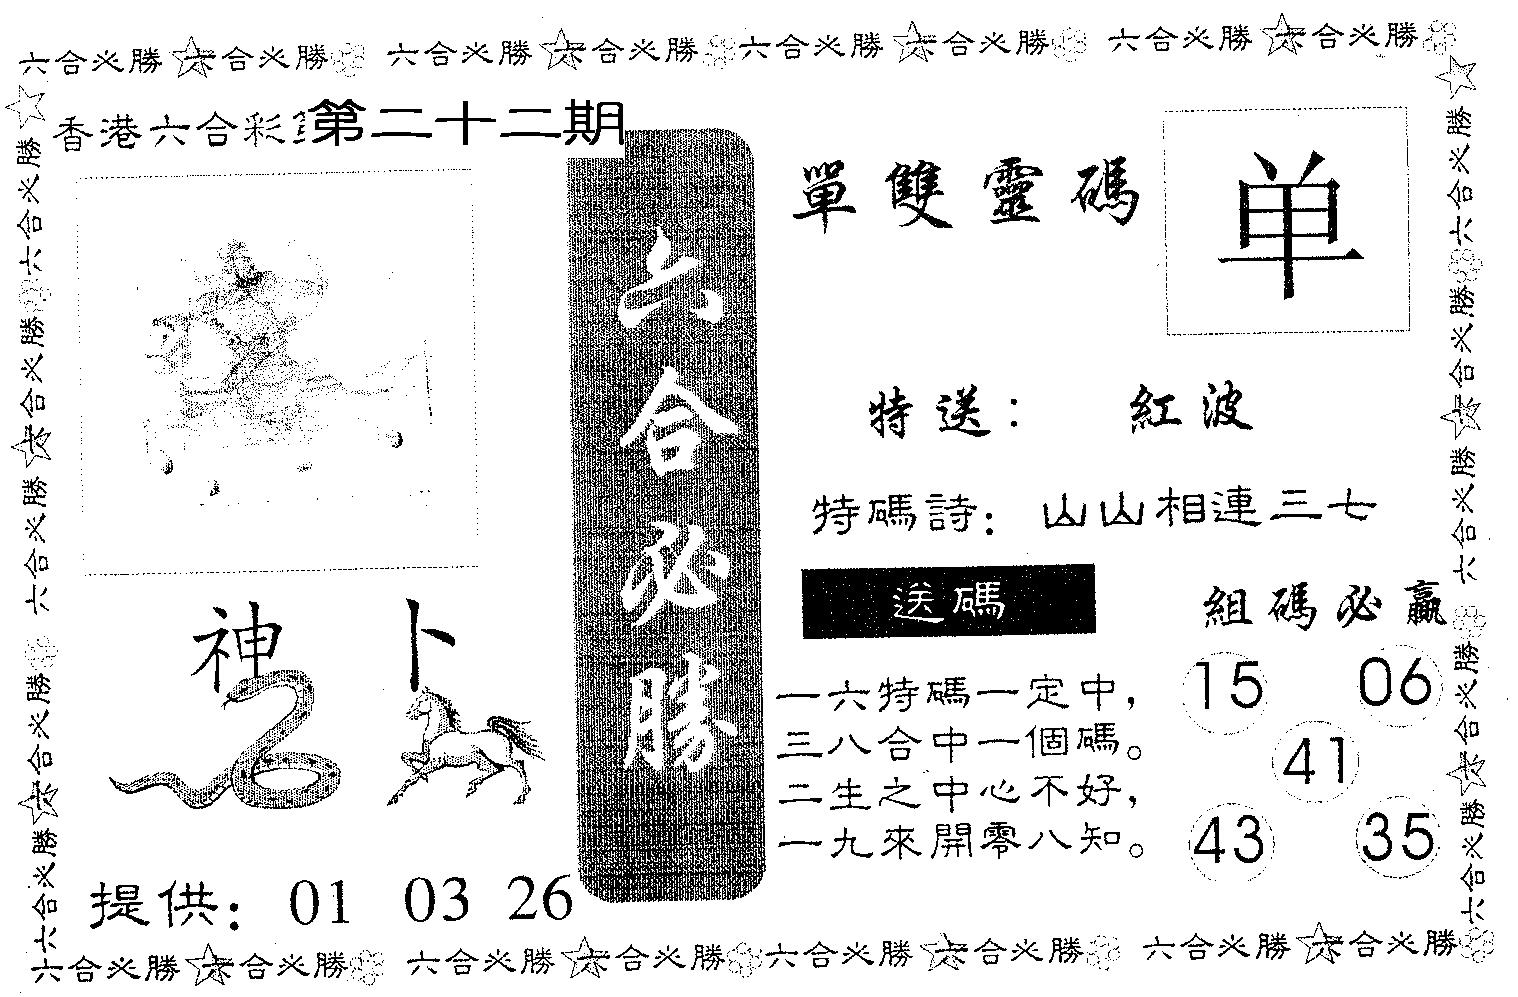 六合必勝 六合必勝 六合必勝 六合必勝 六合必勝 六合必勝 六合必勝 六合必勝
香港六合彩 第二十二期
六合必勝
單雙靈碼 单
特送： 紅波
特碼詩：山山相連三七
送碼
組碼必贏
神 卜
一六特碼一定中，
三八合中一個碼。
二生之中心不好，
一九來開零八知。
15 06
41
43 35
提供：01 03 26
六合必勝 六合必勝 六合必勝 六合必勝 六合必勝
六合必勝 六合必勝 六合必勝 六合必勝 六合必勝
六合必勝 六合必勝 六合必勝 六合必勝 六合必勝 六合必勝 六合必勝 六合必勝